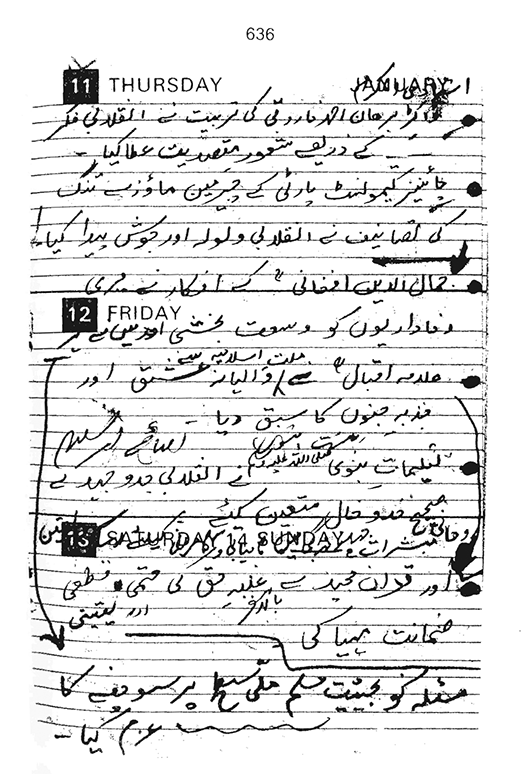 636
11 THURSDAY JANUARY
ڈاکٹر برھان احمد فاروقی کی تربیت نے انقلابی فکر
کے ذریعے شعور مقصدیت عطا کیا۔
چائینیز کیمونسٹ پارٹی کے چیرمین ماؤزے تنگ
کی تصانیف نے انقلابی ولولہ اور جوش پیدا کیا۔
جمال الدین افغانی کے افکار نے میری
12 FRIDAY
وفاداریوں کو وسعت بخشی
ملت اسلامیہ سے
علامہ اقبال نے والہانہ عشق اور
جذبہ جنوں کا سبق دیا۔
تعلیمات نبوی صلی اللہ علیہ وسلم نے انقلابی جدوجہد کے
صحیح خدوخال متعین کیے
13 SATURDAY 14 SUNDAY
اور قرآن مجید نے غلبہ حق کی حتمی، قطعی
بالآخر اور یقینی
ضمانت مہیا کی
مسئلہ کو بحیثیت مسلم ملی سطح پر سوچنے کا
عزم کیا۔